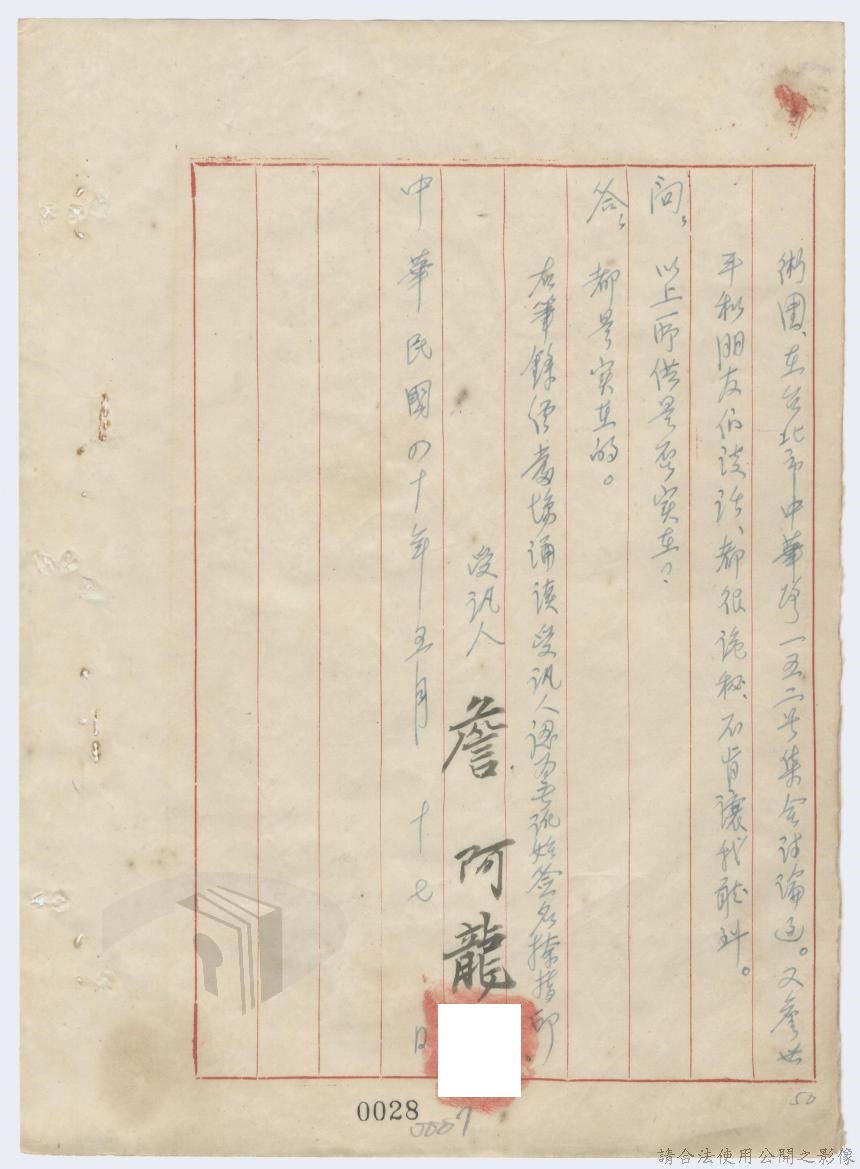 術團、在台北市中華路一五二号集会討論过。又詹世
平和朋友们谈话、都很诡秘、不肯讓我听到。
问、以上所供是否实在？
答、都是实在的。
右筆錄經當場诵读受讯人認為無讹始签名捺指印、
受讯人 詹阿龍
中華民國四十年五月十七日
0028
50
請合法使用公開之影像